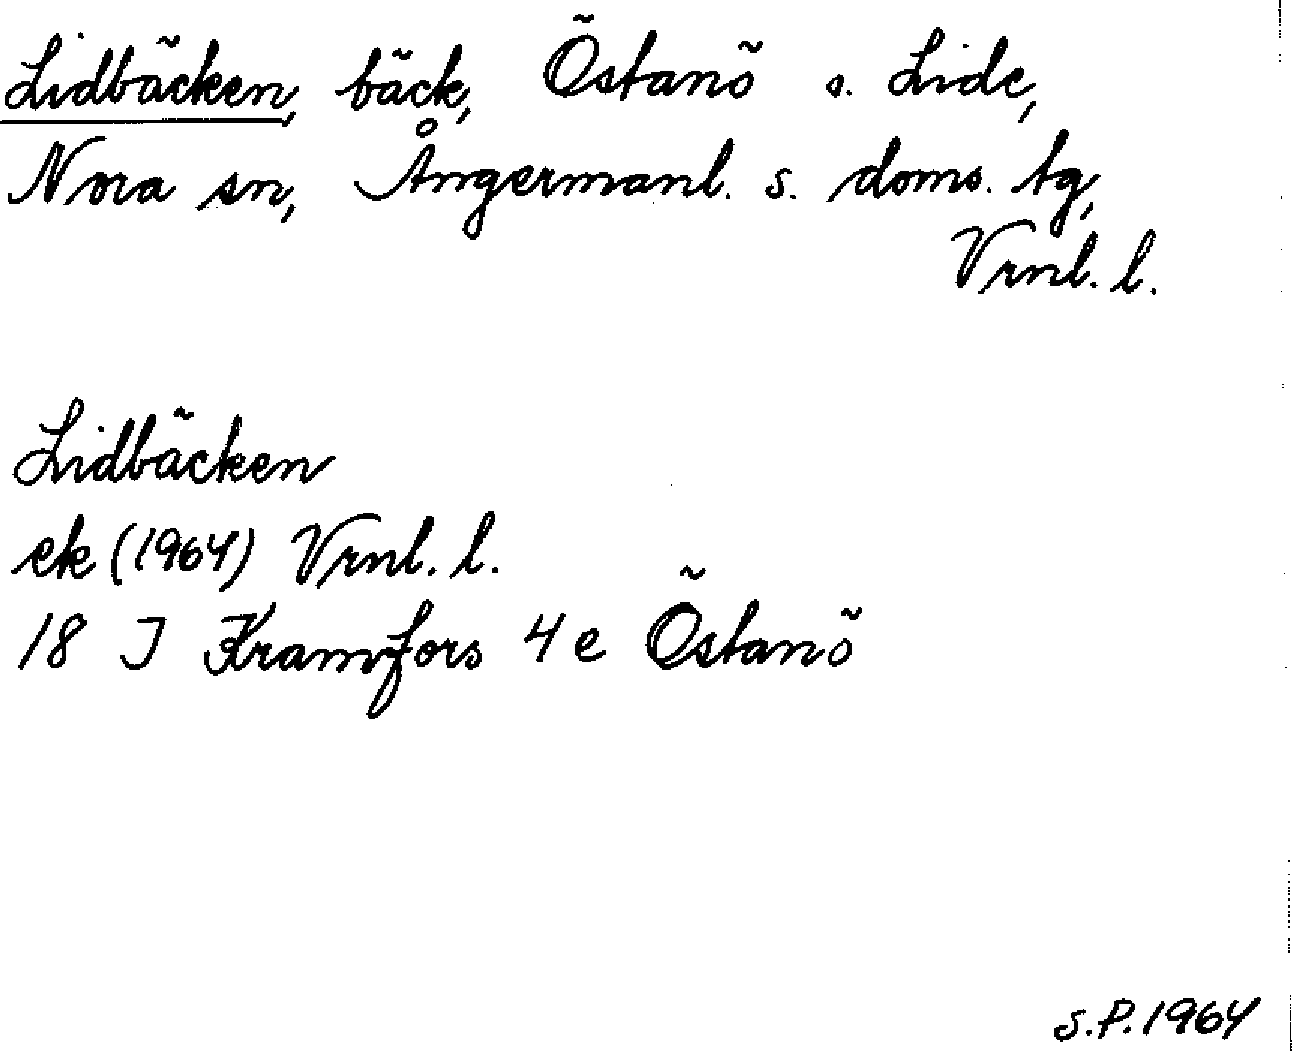 Lidbäcken, bäck, Östanö o. Lide,
Nora sn, Ångermanl. s. doms. tg,
Vrnl. l.
Lidbäcken
ek (1964) Vrnl. l.
18 J Kramfors 4e Östanö
S.P. 1964